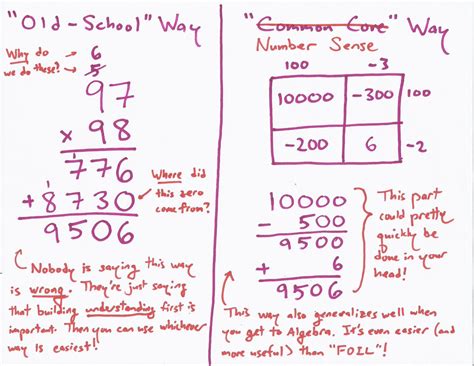 "Old-School" Way
Why do
we do these?→
6
5
97
x 98
1
776
+8730
9506
Where did
this zero
come from?
Nobody is saying this way
is wrong. They're just saying
that building understanding first is
important. Then you can use whichever
way is easiest!
"Common Core" Way
Number Sense
100 -3
10000 -300 100
-200 6 -2
10000
- 500
9500
+ 6
9506
This part
could pretty
quickly be
done in your
head!
This way also generalizes well when
you get to Algebra. It's even easier (and
more useful) than "FOIL"!